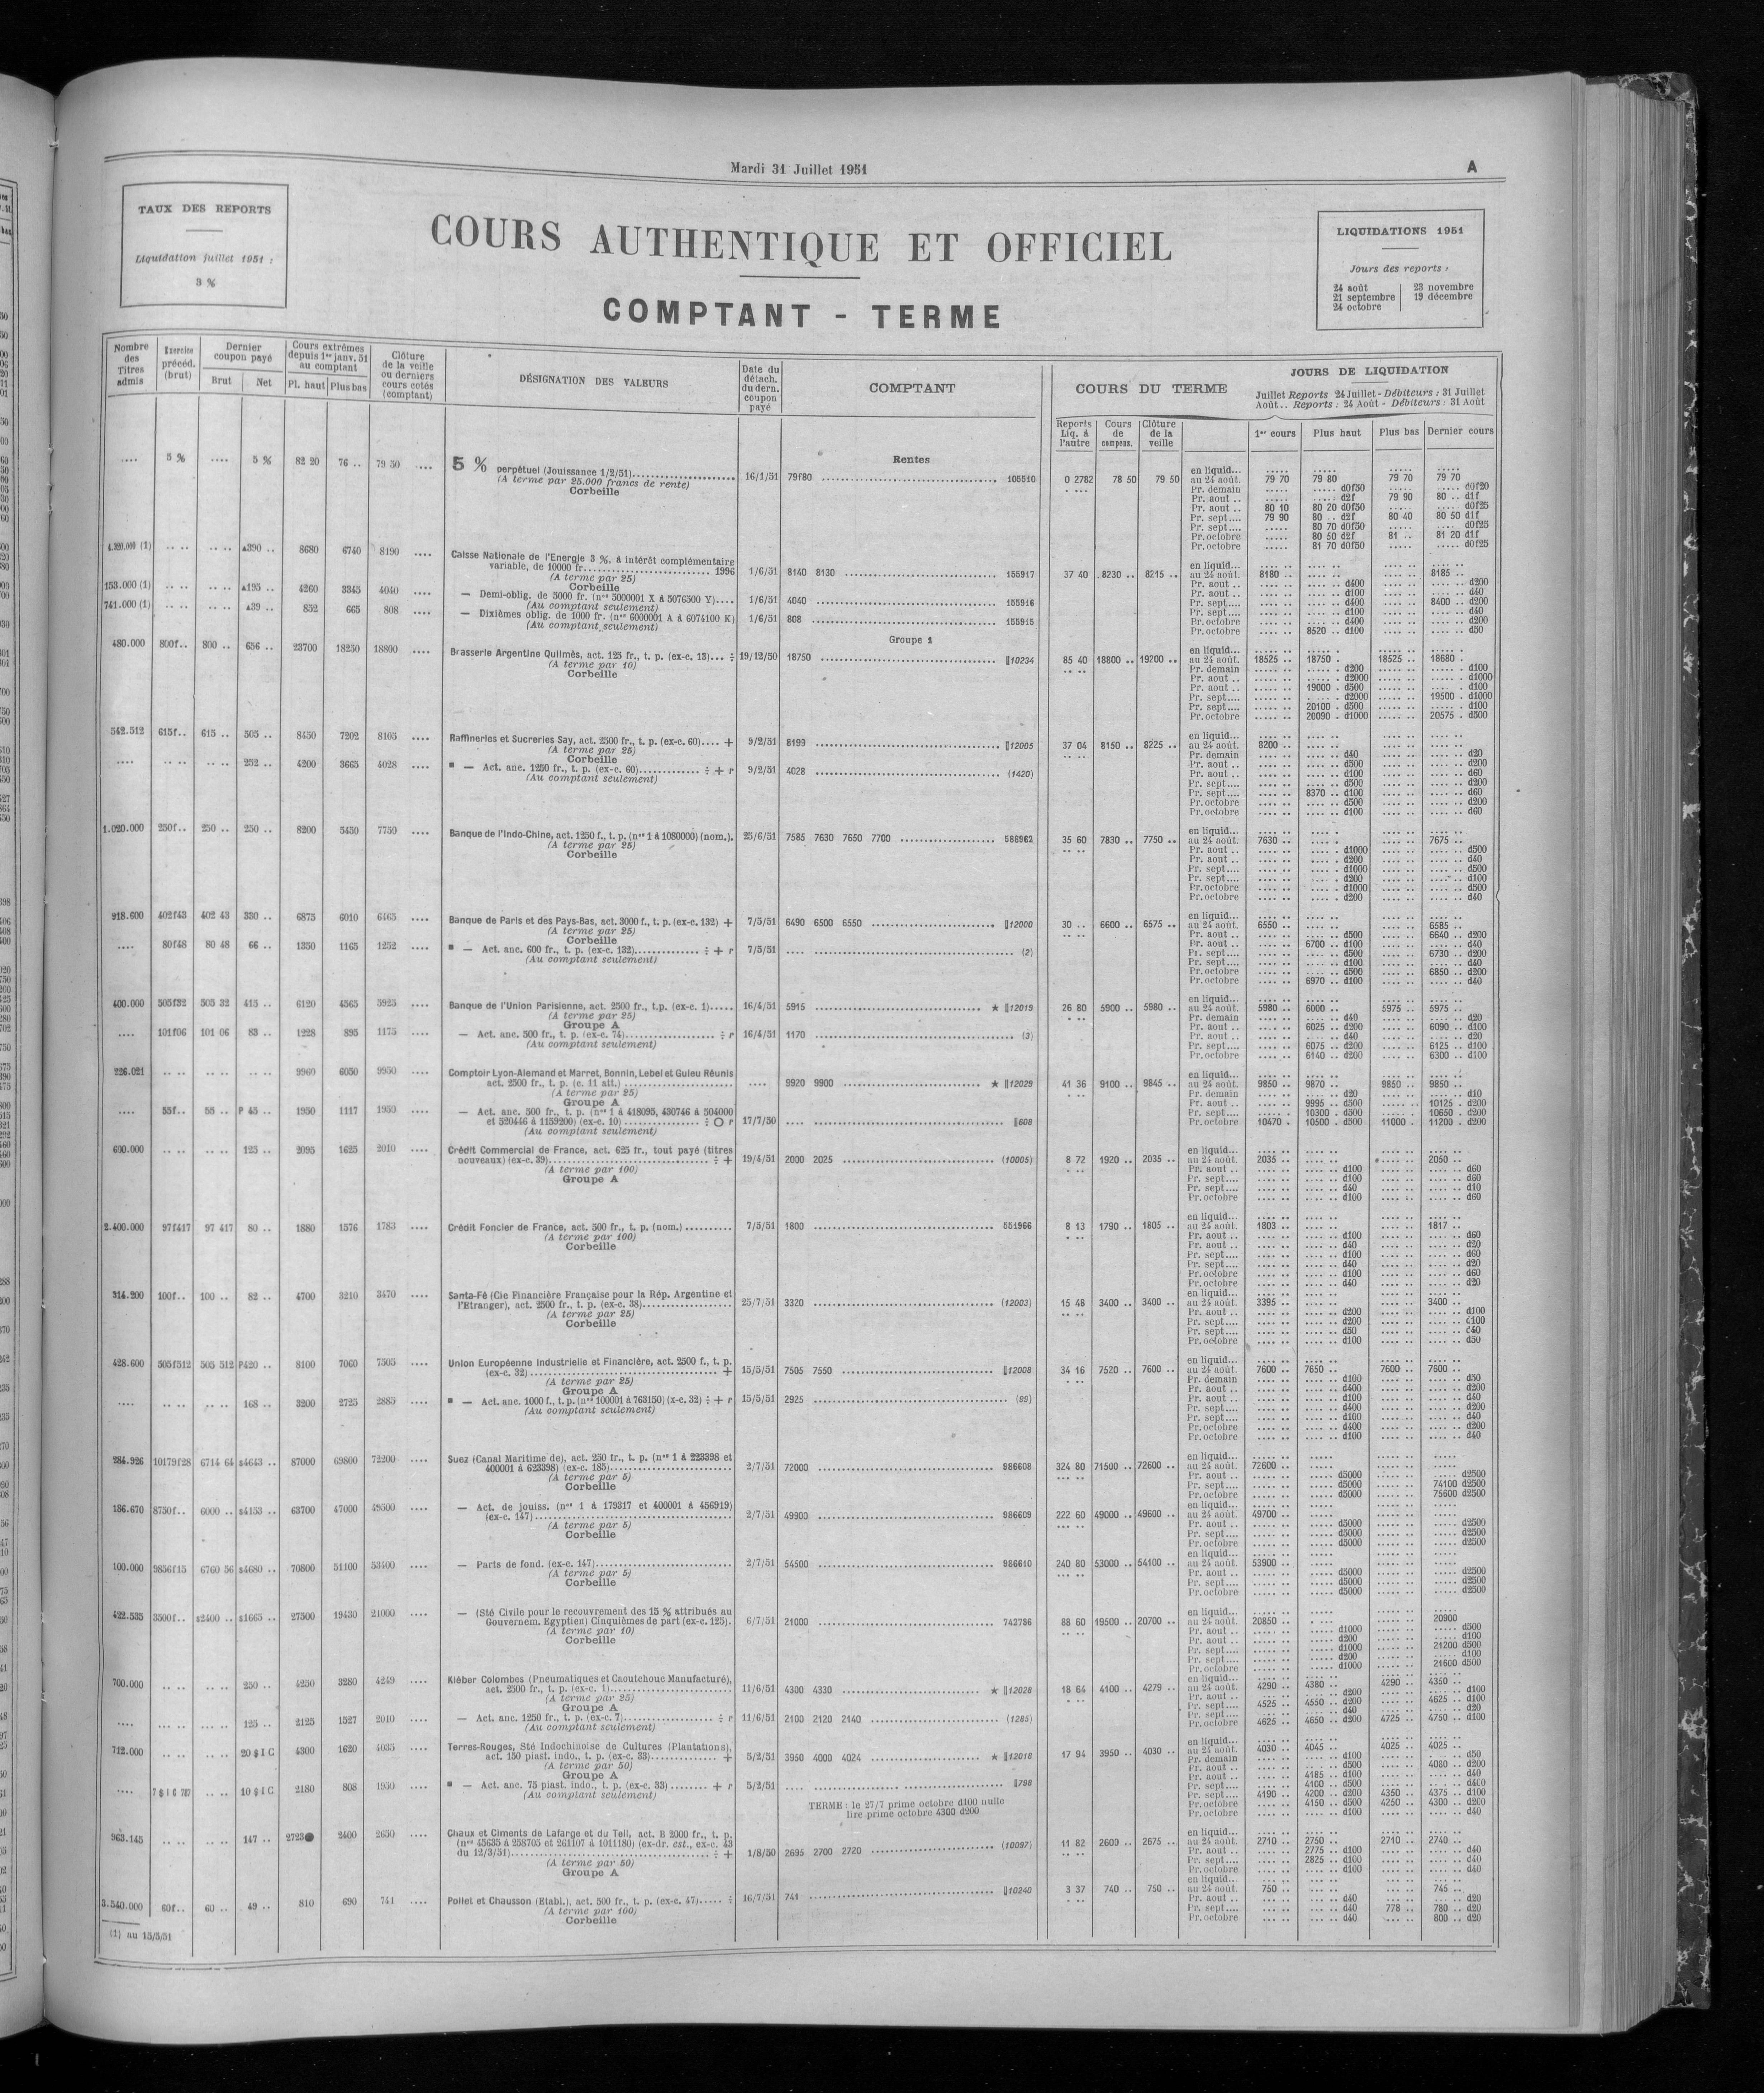 Mardi 31 Juillet 1951
A
TAUX DES REPORTS
Liquidation juillet 1951 :
3 %
COURS AUTHENTIQUE ET OFFICIEL
COMPTANT - TERME
LIQUIDATIONS 1951
Jours des reports :
24 août 23 novembre
21 septembre 19 décembre
24 octobre
Nombre des Titres admis
Exercice précéd. (brut)
Dernier coupon payé
Brut Net
Cours extrêmes depuis 1er janv. 51 au comptant
Pl. haut Plus bas
Clôture de la veille ou derniers cours cotés (comptant)
DÉSIGNATION DES VALEURS
Date du détach. du dern. coupon payé
COMPTANT
COURS DU TERME
JOURS DE LIQUIDATION
Juillet Reports 24 Juillet - Débiteurs : 31 Juillet
Août.. Reports : 24 Août - Débiteurs : 31 Août
Reports Liq. à l'autre
Cours de compens.
Clôture de la veille
1er cours Plus haut Plus bas Dernier cours
Rentes
.... 5 % .... 5 % 82 20 76 .. 79 50 .... 5 % perpétuel (Jouissance 1/2/51) 16/1/51 79f80 105510 0 2782 78 50 79 50
(A terme par 25.000 francs de rente)
Corbeille
en liquid...
au 24 août. 79 70 79 80 79 70 79 70
Pr. demain d0f50 d0f20
Pr. aout .. d2f 79 90 80 .. d1f
Pr. aout .. 80 10 80 20 d0f50 d0f25
Pr. sept.... 79 90 80 .. d2f 80 40 80 50 d1f
Pr. sept.... 80 70 d0f50 d0f25
Pr. octobre 80 50 d2f 81 .. 81 20 d1f
Pr. octobre 81 70 d0f50 d0f25
4.320.000 (1) ▲390 .. 8680 6740 8190 .... Caisse Nationale de l'Energie 3 %, à intérêt complémentaire
variable, de 10000 fr. 1996 1/6/51 8140 8130 155917 37 40 8230 .. 8215 ..
(A terme par 25)
Corbeille
153.000 (1) ▲195 .. 4260 3345 4040 .... — Demi-oblig. de 5000 fr. (nos 5000001 X à 5076500 Y) 1/6/51 4040 155916
(Au comptant seulement)
741.000 (1) ▲39 .. 852 665 808 .... — Dixièmes oblig. de 1000 fr. (nos 6000001 A à 6074100 K) 1/6/51 808 155915
(Au comptant seulement)
en liquid...
au 24 août. 8180 .. 8185 ..
Pr. aout .. d400 d200
Pr. aout .. d100 d40
Pr. sept.... d400 8400 .. d200
Pr. sept.... d100 d40
Pr. octobre d400 d200
Pr. octobre 8520 .. d100 d50
Groupe 1
480.000 800f.. 800 .. 656 .. 23700 18250 18800 .... Brasserie Argentine Quilmès, act. 125 fr., t. p. (ex-c. 15)... ÷ 19/12/50 18750 ‖10234 85 40 18800 .. 19200 ..
(A terme par 10)
Corbeille
en liquid...
au 24 août. 18525 .. 18750 . 18525 .. 18680 .
Pr. demain d200 d100
Pr. aout .. d2000 d1000
Pr. aout .. 19000 . d500 d100
Pr. sept.... d2000 19500 . d1000
Pr. sept.... 20100 . d500 d100
Pr. octobre 20090 . d1000 20575 . d500
542.512 615f.. 615 .. 505 .. 8450 7202 8105 .... Raffineries et Sucreries Say, act. 2500 fr., t. p. (ex-c. 60).... + 9/2/51 8199 ‖12005 37 04 8150 .. 8225 ..
(A terme par 25)
Corbeille
.... 252 .. 4200 3665 4028 .... ■ — Act. anc. 1250 fr., t. p. (ex-c. 60) ÷ + r 9/2/51 4028 (1420)
(Au comptant seulement)
en liquid...
au 24 août. 8200 ..
Pr. demain d40 d20
Pr. aout .. d500 d200
Pr. aout .. d100 d60
Pr. sept.... d500 d200
Pr. sept.... 8370 .. d100 d60
Pr. octobre d500 d200
Pr. octobre d100 d60
1.020.000 250f.. 250 .. 250 .. 8200 5450 7750 .... Banque de l'Indo-Chine, act. 1250 f., t. p. (nos 1 à 1080000) (nom.). 25/6/51 7585 7630 7650 7700 588962 35 60 7830 .. 7750 ..
(A terme par 25)
Corbeille
en liquid...
au 24 août. 7630 .. 7675 ..
Pr. aout .. d1000 d500
Pr. aout .. d200 d40
Pr. sept.... d1000 d500
Pr. sept.... d200 d100
Pr. octobre d1000 d500
Pr. octobre d200 d40
918.600 402f43 402 43 330 .. 6875 6010 6465 .... Banque de Paris et des Pays-Bas, act. 3000 f., t. p. (ex-c. 132) + 7/5/51 6490 6500 6550 ‖12000 30 .. 6600 .. 6575 ..
(A terme par 25)
Corbeille
.... 80f48 80 48 66 .. 1350 1165 1252 .... ■ — Act. anc. 600 fr., t. p. (ex-c. 132) ÷ + r 7/5/51 .... (2)
(Au comptant seulement)
en liquid...
au 24 août. 6550 .. 6585 ..
Pr. aout .. d500 6640 .. d200
Pr. aout .. 6700 .. d100 d40
Pr. sept.... d500 6730 .. d200
Pr. sept.... d100 d40
Pr. octobre d500 6850 .. d200
Pr. octobre 6970 .. d100 d40
400.000 505f32 505 32 415 .. 6120 4565 5925 .... Banque de l'Union Parisienne, act. 2500 fr., t.p. (ex-c. 1)..... 16/4/51 5915 ★ ‖12019 26 80 5900 .. 5980 ..
(A terme par 25)
Groupe A
.... 101f06 101 06 83 .. 1228 895 1175 .... — Act. anc. 500 fr., t. p. (ex-c. 74) ÷ r 16/4/51 1170 (3)
(Au comptant seulement)
en liquid...
au 24 août. 5980 .. 6000 .. 5975 .. 5975 ..
Pr. demain d40 d20
Pr. aout .. 6025 .. d200 6090 .. d100
Pr. aout .. d40 d20
Pr. sept.... 6075 .. d200 6125 .. d100
Pr. octobre 6140 .. d200 6300 .. d100
226.021 9960 6050 9950 .... Comptoir Lyon-Alemand et Marret, Bonnin, Lebel et Guieu Réunis
act. 2500 fr., t. p. (c. 11 att.) .... 9920 9900 ★ ‖12029 41 36 9100 .. 9845 ..
(A terme par 25)
Groupe A
.... 55f.. 55 .. P 45 .. 1950 1117 1950 .... — Act. anc. 500 fr., t. p. (nos 1 à 418095, 430746 à 504000
et 520446 à 1159200) (ex-c. 10) ÷ O r 17/7/50 .... ‖608
(Au comptant seulement)
en liquid...
au 24 août. 9850 .. 9870 .. 9850 .. 9850 ..
Pr. demain d20 d10
Pr. aout .. 9995 .. d500 10125 . d200
Pr. sept.... 10300 . d500 10650 . d200
Pr. octobre 10470 . 10500 . d500 11000 . 11200 . d200
600.000 125 .. 2095 1625 2010 .... Crédit Commercial de France, act. 625 fr., tout payé (titres
nouveaux) (ex-c. 39) ÷ + 19/4/51 2000 2025 (10005) 8 72 1920 .. 2035 ..
(A terme par 100)
Groupe A
en liquid...
au 24 août. 2035 .. 2050 ..
Pr. aout .. d100 d60
Pr. sept.... d100 d60
Pr. sept.... d40 d10
Pr. octobre d100 d60
2.400.000 97f417 97 417 80 .. 1880 1576 1783 .... Crédit Foncier de France, act. 500 fr., t. p. (nom.) 7/5/51 1800 551966 8 13 1790 .. 1805 ..
(A terme par 100)
Corbeille
en liquid...
au 24 août. 1803 .. 1817 ..
Pr. aout .. d100 d60
Pr. aout .. d40 d20
Pr. sept.... d100 d60
Pr. sept.... d40 d20
Pr. octobre d100 d60
Pr. octobre d40 d20
314.200 100f.. 100 .. 82 .. 4700 3210 3470 .... Santa-Fé (Cie Financière Française pour la Rép. Argentine et
l'Etranger), act. 2500 fr., t. p. (ex-c. 38) 25/7/51 3320 (12003) 15 48 3400 .. 3400 ..
(A terme par 25)
Corbeille
en liquid...
au 24 août. 3395 .. 3400 ..
Pr. aout .. d200 d100
Pr. sept.... d200 d100
Pr. sept.... d50 d40
Pr. octobre d100 d50
428.600 505f512 505 512 P420 .. 8100 7060 7505 .... Union Européenne Industrielle et Financière, act. 2500 f., t. p.
(ex-c. 32) + 15/5/51 7505 7550 ‖12008 34 16 7520 .. 7600 ..
(A terme par 25)
Groupe A
.... 168 .. 3200 2725 2885 .... ■ — Act. anc. 1000 f., t. p. (nos 100001 à 763150) (x-c. 32) ÷ + r 15/5/51 2925 (99)
(Au comptant seulement)
en liquid...
au 24 août. 7600 .. 7650 .. 7600 .. 7600 ..
Pr. demain d100 d50
Pr. aout .. d400 d200
Pr. aout .. d100 d40
Pr. sept.... d400 d200
Pr. sept.... d100 d40
Pr. octobre d400 d200
Pr. octobre d100 d40
284.926 10179f28 6714 64 s4643 .. 87000 69800 72200 .... Suez (Canal Maritime de), act. 250 fr., t. p. (nos 1 à 223398 et
400001 à 623398) (ex-c. 185) 2/7/51 72000 986608 324 80 71500 .. 72600 ..
(A terme par 5)
Corbeille
en liquid...
au 24 août. 72600 ..
Pr. aout .. d5000 d2500
Pr. sept.... d5000 74100 d2500
Pr. octobre d5000 75600 d2500
186.670 8750f.. 6000 .. s4153 .. 63700 47000 49500 .... — Act. de jouiss. (nos 1 à 179317 et 400001 à 456919)
(ex-c. 147) 2/7/51 49900 986609 222 60 49000 .. 49600 ..
(A terme par 5)
Corbeille
en liquid...
au 24 août. 49700 ..
Pr. aout .. d5000 d2500
Pr. sept.... d5000 d2500
Pr. octobre d5000 d2500
100.000 9856f15 6760 56 s4680 .. 70800 51100 53400 .... — Parts de fond. (ex-c. 147) 2/7/51 54500 986610 240 80 53000 .. 54100 ..
(A terme par 5)
Corbeille
en liquid...
au 24 août. 53900 ..
Pr. aout .. d5000 d2500
Pr. sept.... d5000 d2500
Pr. octobre d5000 d2500
422.535 3500f.. s2400 .. s1665 .. 27500 19430 21000 .... — (Sté Civile pour le recouvrement des 15 % attribués au
Gouvernem. Egyptien) Cinquièmes de part (ex-c. 125). 6/7/51 21000 742786 88 60 19500 .. 20700 ..
(A terme par 10)
Corbeille
en liquid...
au 24 août. 20850 .. 20900
Pr. aout .. d1000 d500
Pr. aout .. d200 d100
Pr. sept.... d1000 21200 d500
Pr. sept.... d200 d100
Pr. octobre d1000 21600 d500
700.000 250 .. 4250 3280 4249 .... Kléber Colombes (Pneumatiques et Caoutchouc Manufacturé),
act. 2500 fr., t. p. (ex-c. 1) 11/6/51 4300 4330 ★ ‖12028 18 64 4100 .. 4279 ..
(A terme par 25)
Groupe A
.... 125 .. 2125 1527 2010 .... — Act. anc. 1250 fr., t. p. (ex-c. 7) ÷ r 11/6/51 2100 2120 2140 (1285)
(Au comptant seulement)
en liquid...
au 24 août. 4290 .. 4380 .. 4290 .. 4350 ..
Pr. aout .. d200 d100
Pr. sept.... 4525 .. 4550 .. d200 4625 .. d100
Pr. sept.... d40 d20
Pr. octobre 4625 .. 4650 .. d200 4725 .. 4750 .. d100
712.000 20 $ I C 4300 1620 4035 .... Terres-Rouges, Sté Indochinoise de Cultures (Plantations),
act. 150 piast. indo., t. p. (ex-c. 33) + 5/2/51 3950 4000 4024 ★ ‖12018 17 94 3950 .. 4030 ..
(A terme par 50)
Groupe A
.... 7 $ I C 787 10 $ I C 2180 808 1950 .... ■ — Act. anc. 75 piast. indo., t. p. (ex-c. 33) + r 5/2/51 .... ‖798
(Au comptant seulement)
TERME : le 27/7 prime octobre d100 nulle
lire prime octobre 4300 d200
en liquid...
au 24 août. 4030 .. 4045 .. 4025 .. 4025 ..
Pr. demain d100 d50
Pr. aout .. d500 4080 .. d200
Pr. aout .. 4185 .. d100 d40
Pr. sept.... 4100 .. d500 d400
Pr. sept.... 4190 .. 4200 .. d200 4350 .. 4375 .. d100
Pr. octobre 4150 .. d500 4250 .. 4300 .. d200
Pr. octobre d100 d40
963.145 147 .. 2723 2400 2650 .... Chaux et Ciments de Lafarge et du Teil, act. B 2000 fr., t. p.
(nos 45635 à 258705 et 261107 à 1011180) (ex-dr. est., ex-c. 43
du 12/3/51) ÷ + 1/8/50 2695 2700 2720 (10097) 11 82 2600 .. 2675 ..
(A terme par 50)
Groupe A
en liquid...
au 24 août. 2710 .. 2750 .. 2710 .. 2740 ..
Pr. aout .. 2775 .. d100 d40
Pr. sept.... 2825 .. d100 d40
Pr. octobre d100 d40
3.540.000 60f.. 60 .. 49 .. 810 690 741 .... Poliet et Chausson (Etabl.), act. 500 fr., t. p. (ex-c. 47)..... ÷ 16/7/51 741 ‖10240 3 37 740 .. 750 ..
(A terme par 100)
Corbeille
en liquid...
au 24 août. 750 .. 745 ..
Pr. aout .. d40 d20
Pr. sept.... d40 778 .. 780 .. d20
Pr. octobre d40 800 .. d20
(1) au 15/5/51